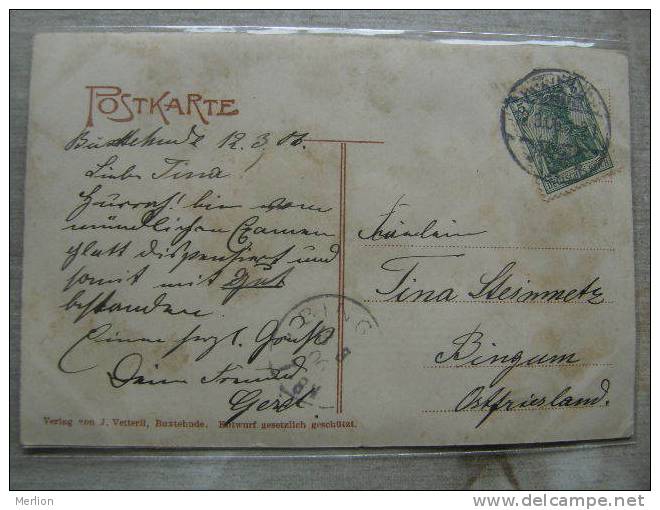 POSTKARTE
Buxtehude 12.3.06.
Liebe Tina!
Hurrah! bin vom
mündlichen Examen
glatt dispensiert und
somit mit Gut
bestanden.
Einen herzl. Gruß
Dein Freund
Gerd.
Fräulein
Tina Steinmetz
Bingum
Ostfriesland.
BINGUM
Verlag von J. Vetterli, Buxtehude. Entwurf gesetzlich geschützt.
Merlion
www.delcampe.net